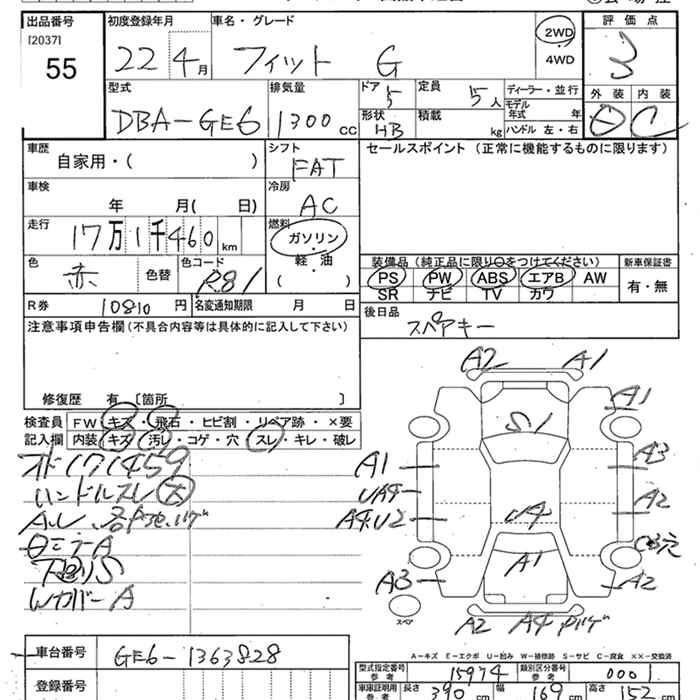 出品番号 初度登録年月 車名・グレード 評価点
[2037] 55 22 4月 フィット G 2WD 4WD 3
型式 排気量 ドア 5 定員 5人 ディーラー・並行 外装 内装
DBA-GE6 1300 CC 形状 HB 積載 kg モデル年式 年 ハンドル 左・右 D C
車歴 自家用・( ) シフト FAT セールスポイント (正常に機能するものに限ります)
車検 年 月( 日) 冷房 AC
走行 17万1千460km 燃料 ガソリン 軽・油 ( )
色 赤 色替 色コード R81
装備品 (純正品に限り○をつけてください) 新車保証書
PS PW ABS エアB AW 有・無
SR ナビ TV カワ
R券 10810円 名変通知期限 月 日 後日品 スペアキー
注意事項申告欄 (不具合内容等は具体的に記入して下さい)
修復歴 有 〔箇所 〕
検査員記入欄 FW キズ・飛石・ヒビ割・リペア跡・×要
内装 キズ・汚レ・コゲ・穴・スレ・キレ・破レ
ハンドルスレ 大
WカバーA
A2 A1
A1 S1 A1
A1 A3
UA4 A2
A4.U2 U4
A1
A3 A2
スペア
A2 A4
A-キズ E-エクボ U-凹み W-補修跡 S-サビ C-腐食 ××-交換済
車台番号 GE6-1363828
登録番号
型式指定番号 参考 15974 類別区分番号 参考 0001
車庫証明用 参考 長さ 390cm 幅 169cm 高さ 152cm